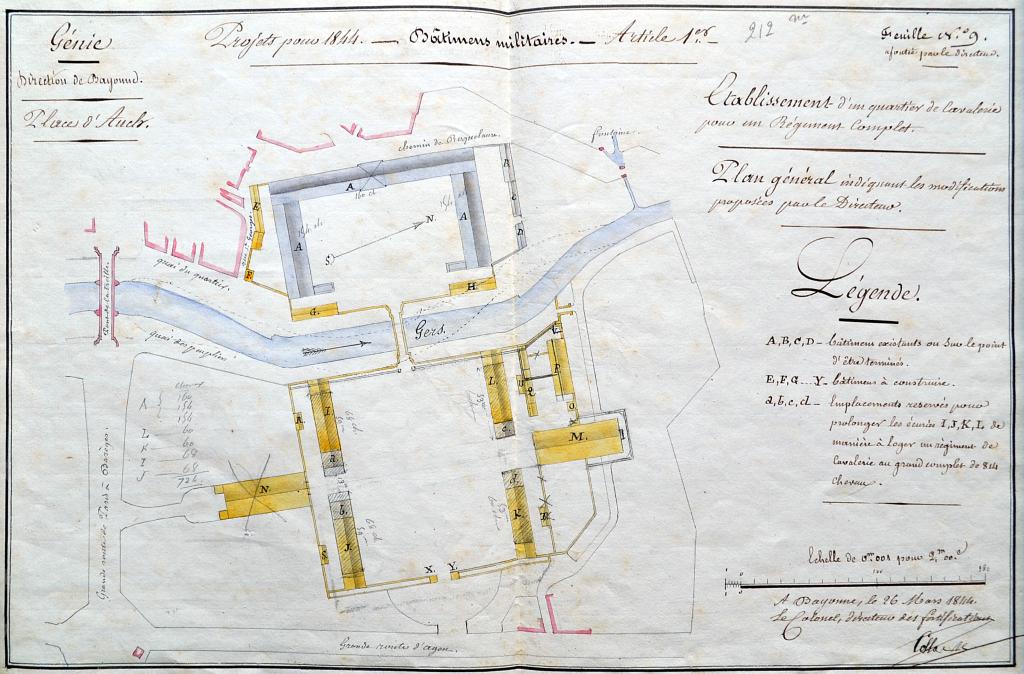 Génie
Direction de Bayonne.
Place d'Auch.
Projets pour 1844. — Bâtimens militaires. — Article 1er.
212
Feuille No 9.
ajoutée par le directeur.
Etablissement d'un quartier de Cavalerie
pour un Régiment Complet.
Plan général indiquant les modifications
proposées par le Directeur.
Légende.
A, B, C, D — bâtimens existants ou sur le point
d'être terminés.
E, F, G ... Y — bâtimens à construire.
a, b, c, d — Emplacements reservés pour
prolonger les écuries I, J, K, L de
manière à loger un régiment de
Cavalerie au grand complet de 814
chevaux.
Echelle de 0m.001 pour 2m.00c
A Bayonne, le 26 Mars 1844.
Le Colonel, directeur des fortifications
fontaine
A
160 ch
B
C
D
E
A
A
N.
S.
quai du quartier.
G.
H.
Gers.
quai des
A
160
156
156
L 60
K 60
I 68
J 68
726
R.
I
a
b
J
S.
L
c
d
K
M.
N
X. Y.
Grande route de Paris à Barèges
Grande route d'agen.